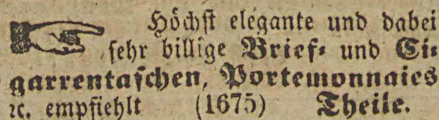 Höchst elegante und dabei
sehr billige Brief- und Ci-
garrentaschen, Portemonnaies
ꝛc. empfiehlt (1675) Theile.